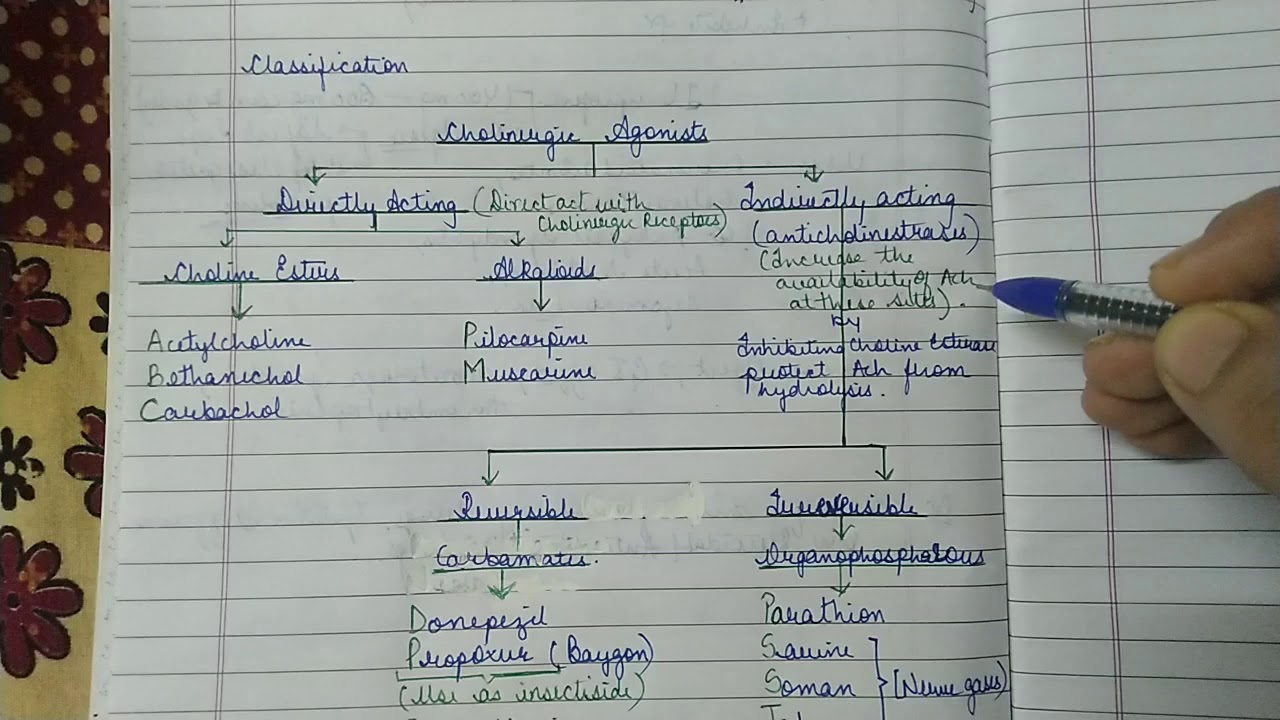 Classification
Cholinergic Agonists
Directly Acting (Direct act with
Cholinergic Receptors)
Choline Esters
Acetylcholine
Bethanechol
Carbachol
Alkalioids
Pilocarpine
Muscarine
Indirectly acting
(anticholinestrases)
(Increase the
availability of Ach
at these sites).
by
Inhibiting Choline Esterase
protect Ach from
hydrolysis.
Reversible
Carbamates.
Donepezil
Propoxur (Baygon)
(Use as insectiside)
Irreversible
Organophosphorous
Parathion
Sarine
Soman
[Nerve gases)